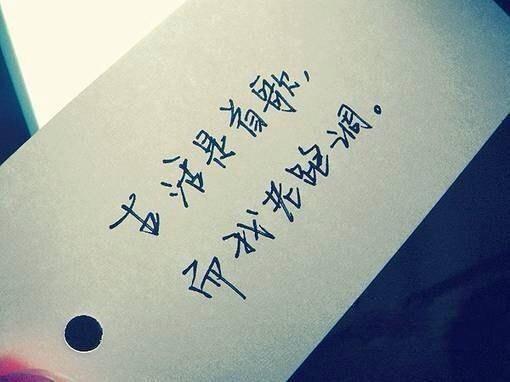 生活是首歌，
而我老跑调。